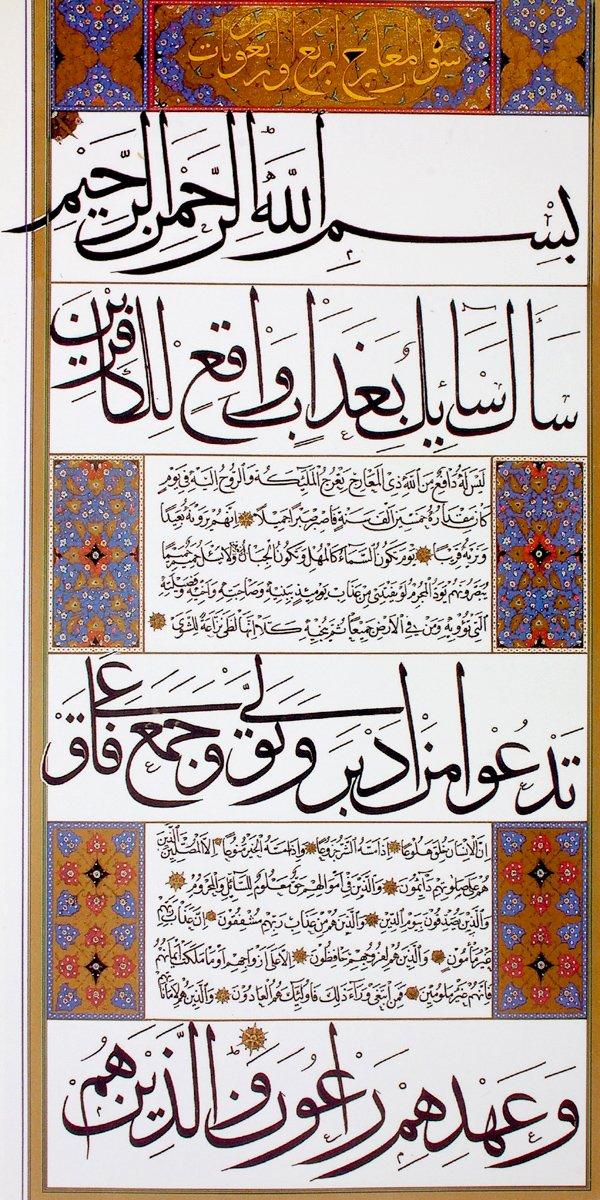 سورة المعارج اربع واربعون ايات
بسم الله الرحمن الرحيم
سال سايل بعذاب واقع للكافرين
ليس له دافع من الله ذي المعارج تعرج الملئكة والروح اليه في يوم
كان مقداره خمسين الف سنة فاصبر صبرا جميلا انهم يرونه بعيدا
ونريه قريبا يوم تكون السماء كالمهل وتكون الجبال ولا يسئل حميم حميما
يبصرونهم يود المجرم لو يفتدي من عذاب يومئذ ببنيه وصاحبته واخيه وفصيلته
التي تؤويه ومن في الارض جميعا ثم ينجيه كلا انها لظى نزاعة للشوى
تدعوا من ادبر وتولى وجمع فاوعى
ان الانسان خلق هلوعا اذا مسه الشر جزوعا واذا مسه الخير منوعا الا المصلين الذين
هم على صلوتهم دائمون والذين في اموالهم حق معلوم للسائل والمحروم
والذين يصدقون بيوم الدين والذين هم من عذاب ربهم مشفقون ان عذاب ربهم
غير مأمون والذين هم لفروجهم حافظون الا على ازواجهم او ما ملكت ايمانهم
فانهم غير ملومين فمن ابتغى وراء ذلك فاولئك هم العادون والذين هم لاماناتهم
وعهدهم راعون والذين هم